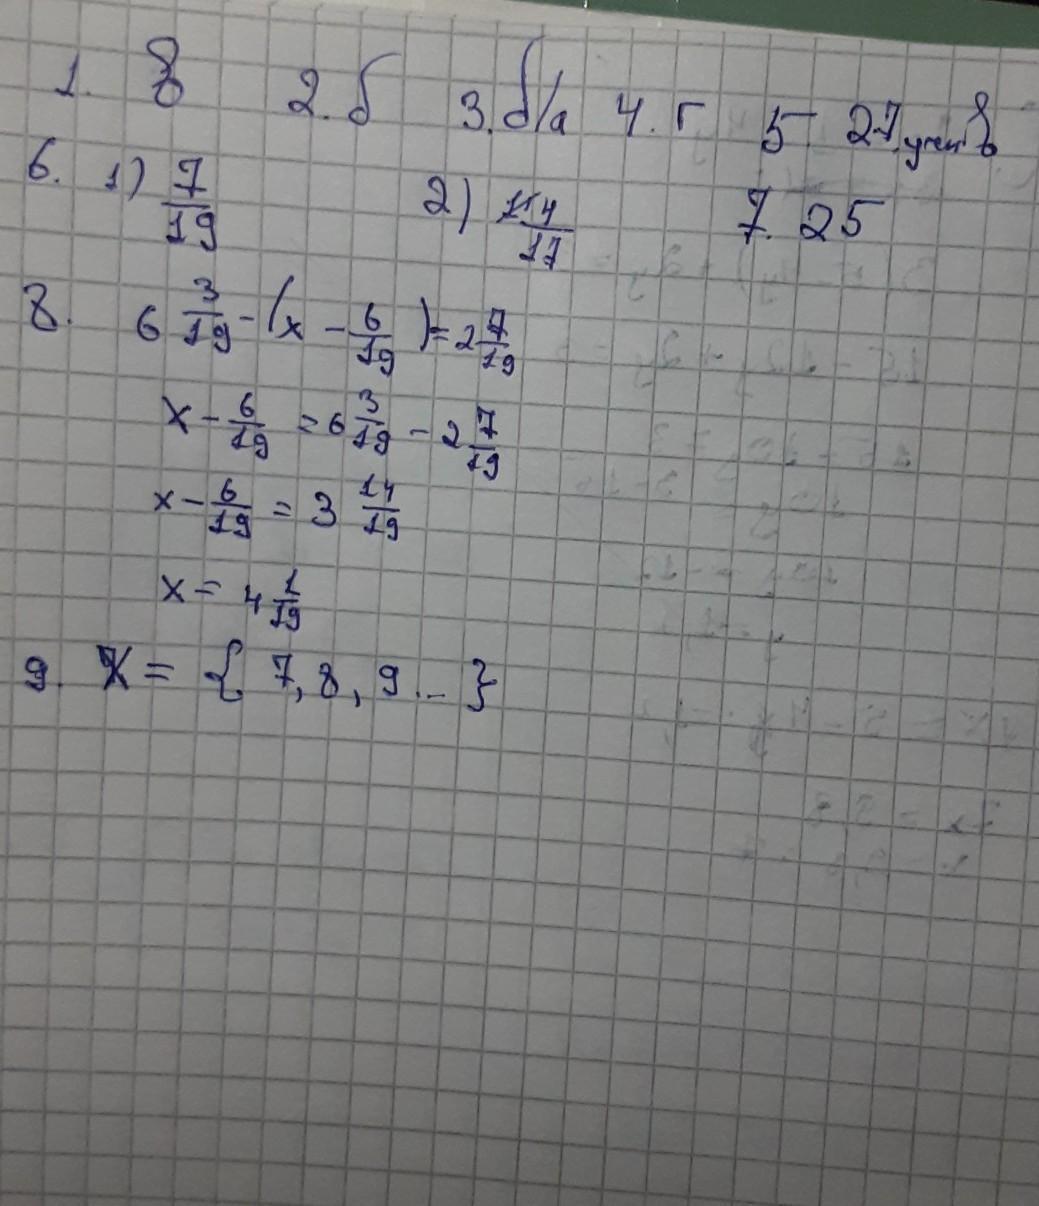 1. в 2. б 3. б/а 4. г 5 27 учен в
6. 1) 7/19 2) 114/17 7. 25
8. 6 3/19 - (x - 6/19) = 2 7/19
x - 6/19 = 6 3/19 - 2 7/19
x - 6/19 = 3 14/19
x = 4 1/19
9. X = { 7, 8, 9 .. }